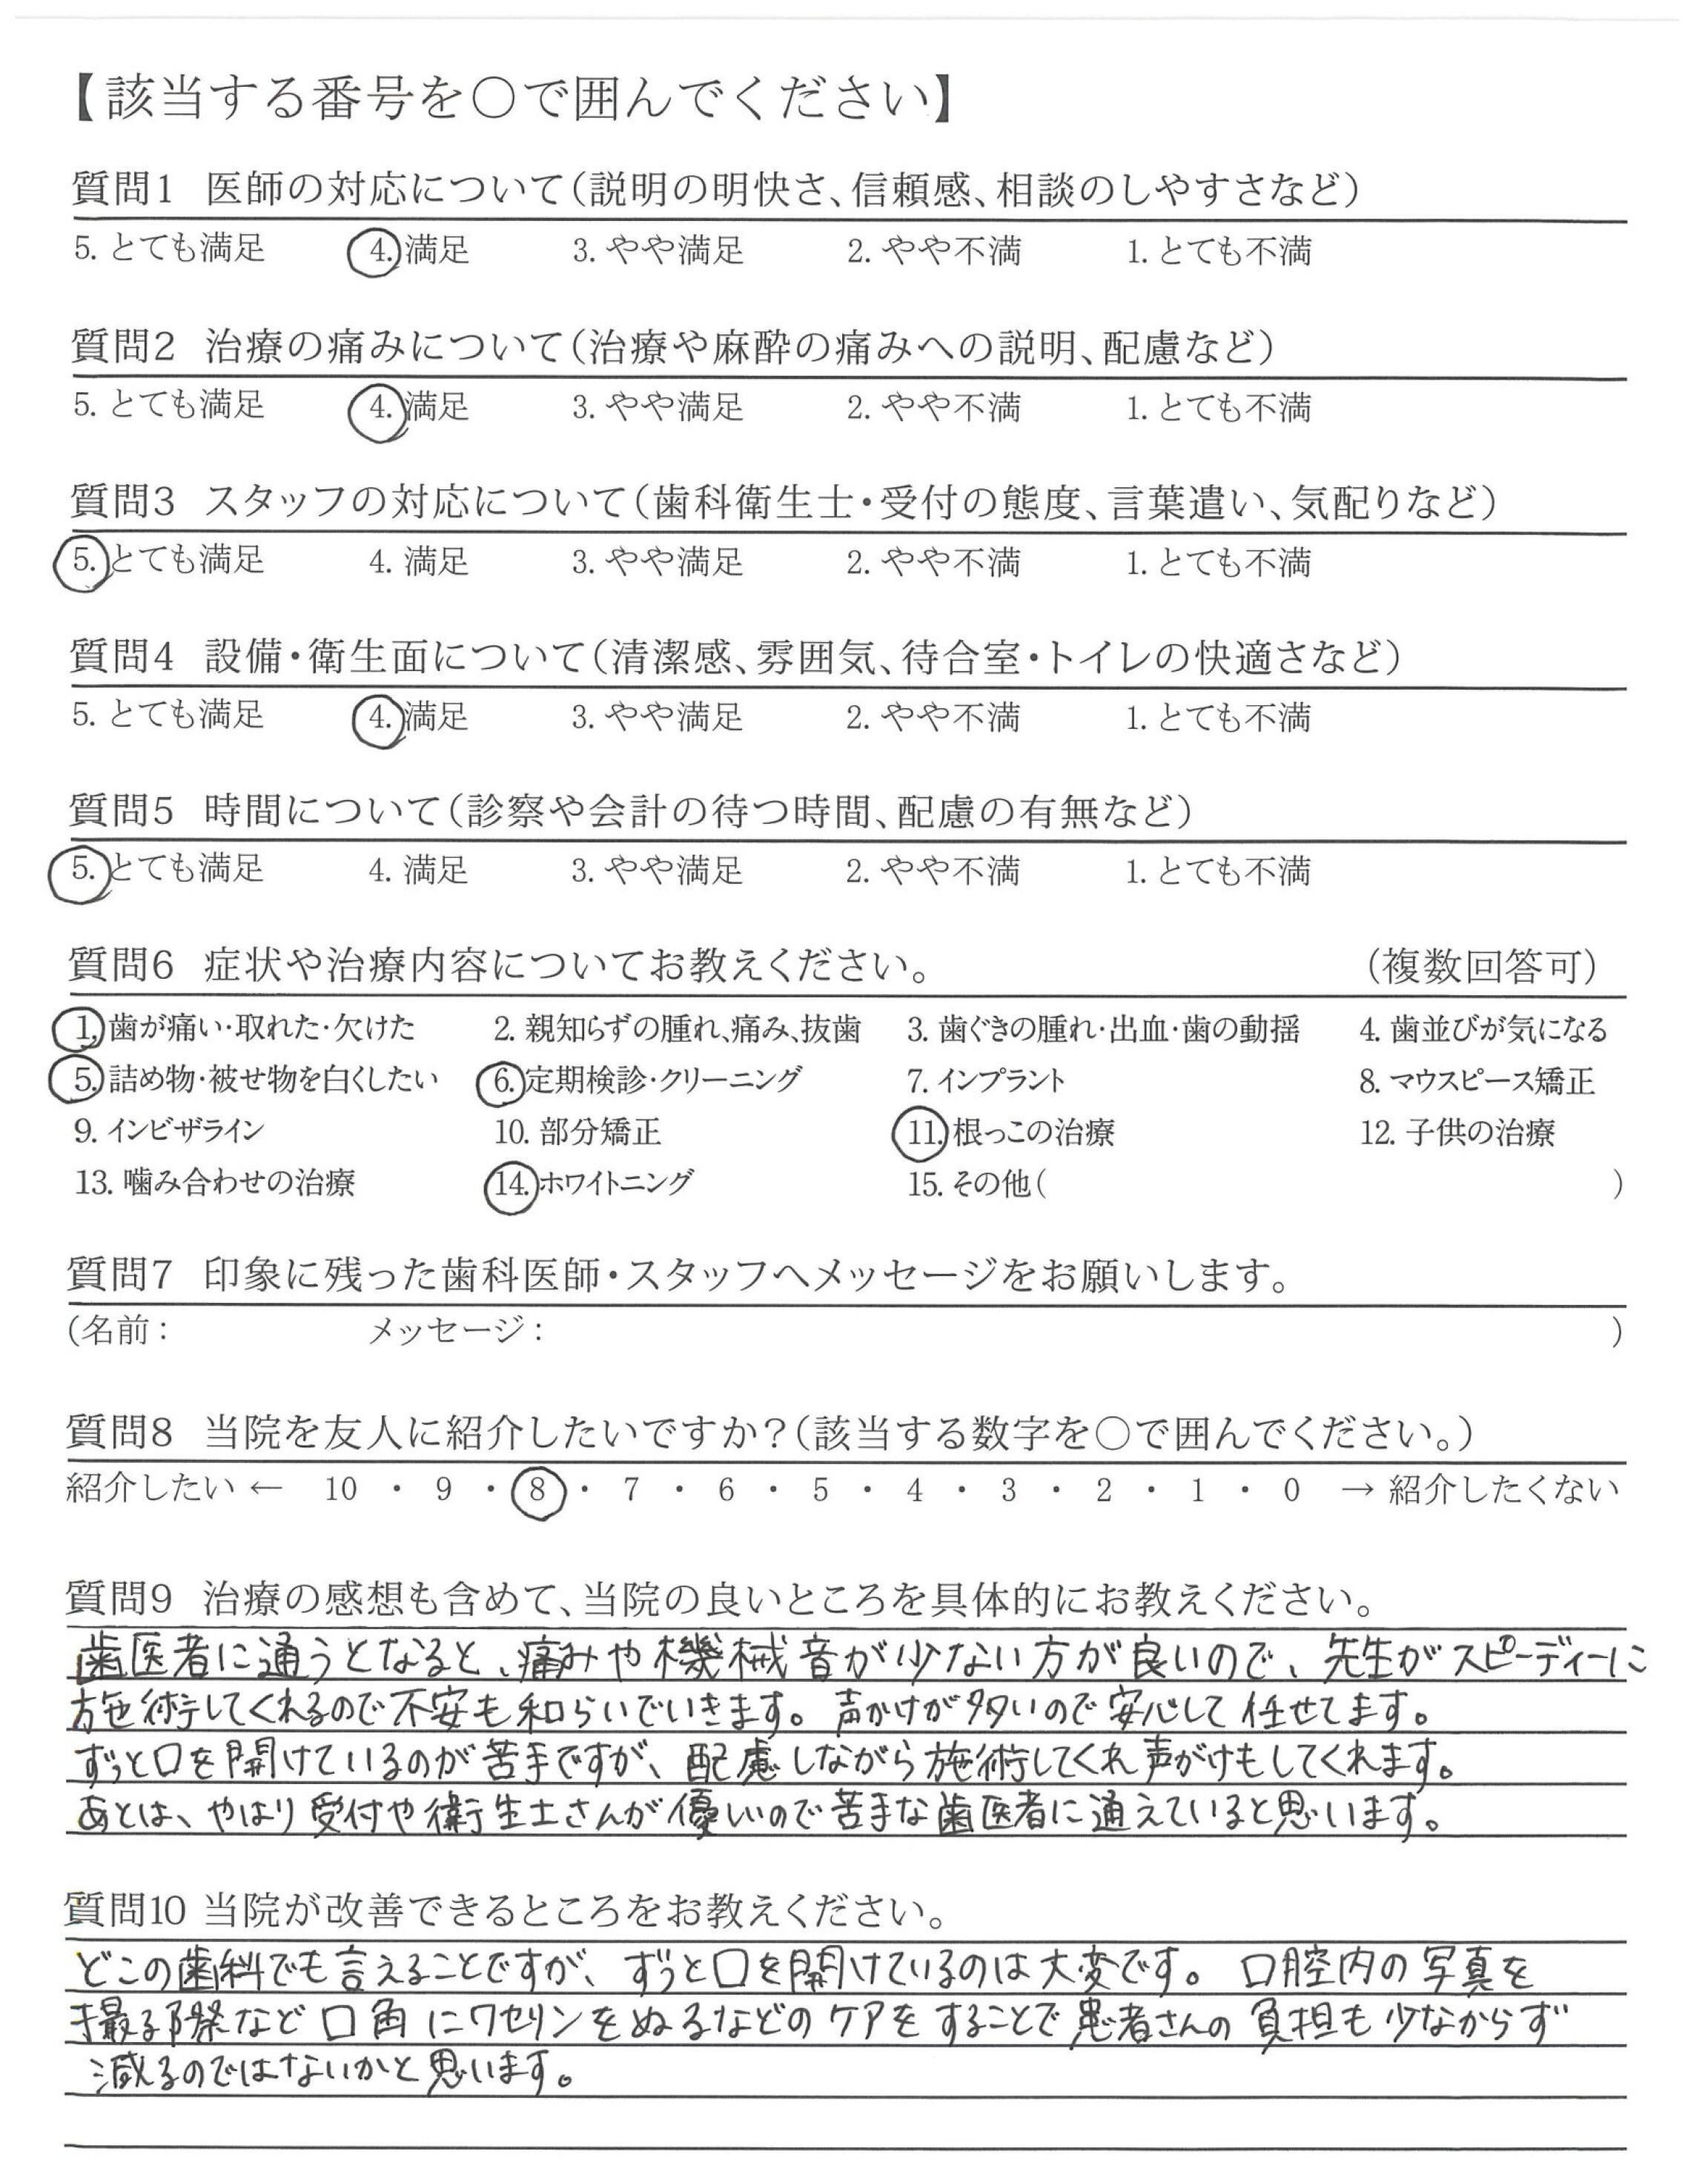 【該当する番号を○で囲んでください】
質問1 医師の対応について(説明の明快さ、信頼感、相談のしやすさなど)
5. とても満足 4. 満足 3. やや満足 2. やや不満 1. とても不満
質問2 治療の痛みについて(治療や麻酔の痛みへの説明、配慮など)
5. とても満足 4. 満足 3. やや満足 2. やや不満 1. とても不満
質問3 スタッフの対応について(歯科衛生士・受付の態度、言葉遣い、気配りなど)
5. とても満足 4. 満足 3. やや満足 2. やや不満 1. とても不満
質問4 設備・衛生面について(清潔感、雰囲気、待合室・トイレの快適さなど)
5. とても満足 4. 満足 3. やや満足 2. やや不満 1. とても不満
質問5 時間について(診察や会計の待つ時間、配慮の有無など)
5. とても満足 4. 満足 3. やや満足 2. やや不満 1. とても不満
質問6 症状や治療内容についてお教えください。 (複数回答可)
1. 歯が痛い・取れた・欠けた 2. 親知らずの腫れ、痛み、抜歯 3. 歯ぐきの腫れ・出血・歯の動揺 4. 歯並びが気になる
5. 詰め物・被せ物を白くしたい 6. 定期検診・クリーニング 7. インプラント 8. マウスピース矯正
9. インビザライン 10. 部分矯正 11. 根っこの治療 12. 子供の治療
13. 噛み合わせの治療 14. ホワイトニング 15. その他( )
質問7 印象に残った歯科医師・スタッフへメッセージをお願いします。
(名前: メッセージ: )
質問8 当院を友人に紹介したいですか?(該当する数字を○で囲んでください。)
紹介したい ← 10 ・ 9 ・ 8 ・ 7 ・ 6 ・ 5 ・ 4 ・ 3 ・ 2 ・ 1 ・ 0 → 紹介したくない
質問9 治療の感想も含めて、当院の良いところを具体的にお教えください。
歯医者に通うとなると、痛みや機械音が少ない方が良いので、先生がスピーディーに
施術してくれるので不安も和らいでいきます。声かけが多いので安心して任せてます。
ずっと口を開けているのが苦手ですが、配慮しながら施術してくれ声がけもしてくれます。
あとは、やはり受付や衛生士さんが優しいので苦手な歯医者に通えていると思います。
質問10 当院が改善できるところをお教えください。
どこの歯科でも言えることですが、ずっと口を開けているのは大変です。口腔内の写真を
撮る際など口角にワセリンをぬるなどのケアをすることで患者さんの負担も少なからず
減るのではないかと思います。